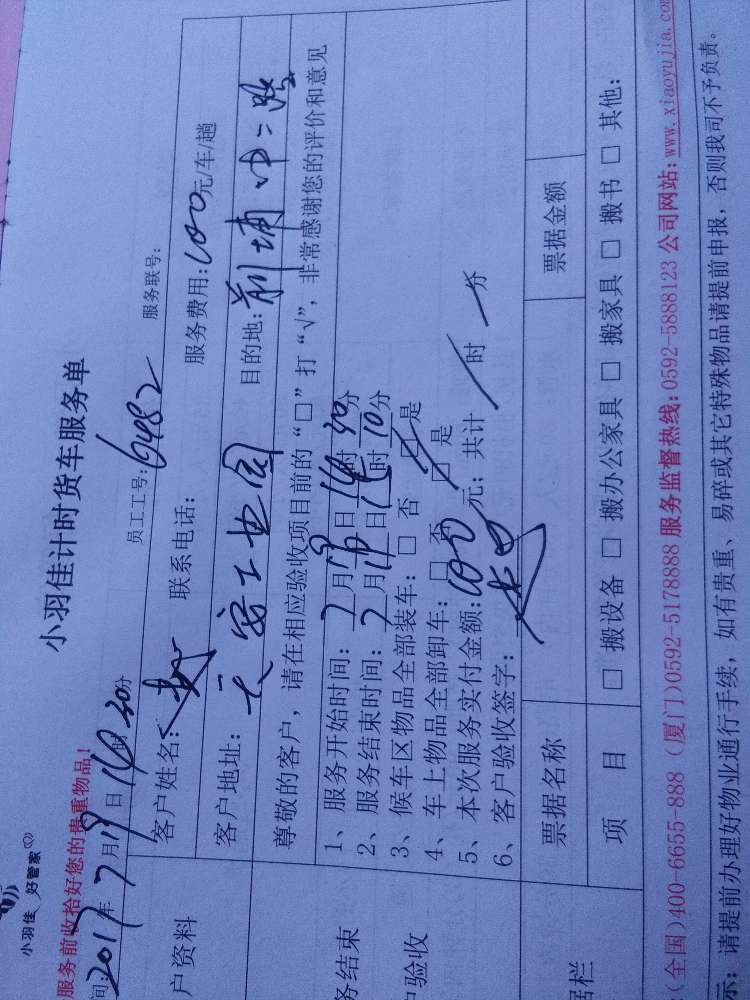 小羽佳 好管家
小羽佳计时货车服务单
服务前收拾好您的贵重物品!
间: 2017年7月19日14时30分 员工工号: 6482 服务联号:
户资料
客户姓名: 联系电话: 服务费用: 100元/车/趟
客户地址: 天安工业园 目的地: 前埔中二路
尊敬的客户,请在相应验收项目前的“□”打“√”,非常感谢您的评价和意见
务结束
户验收
1、服务开始时间: 7月19日14时30分
2、服务结束时间: 7月19日 时10分
3、候车区物品全部装车: □ 否 □ 是
4、车上物品全部卸车: □ 否 □ 是
5、本次服务实付金额: 100元; 共计 时 分
6、客户验收签字:
据栏
票据名称 票据金额
项 目 □ 搬设备 □ 搬办公家具 □ 搬家具 □ 搬书 □ 其他:
(全国)400-6655-888 (厦门)0592-5178888 服务监督热线:0592-5888123 公司网站:www.xiaoyujia.com
示: 请提前办理好物业通行手续,如有贵重、易碎或其它特殊物品请提前申报,否则我司不予负责。